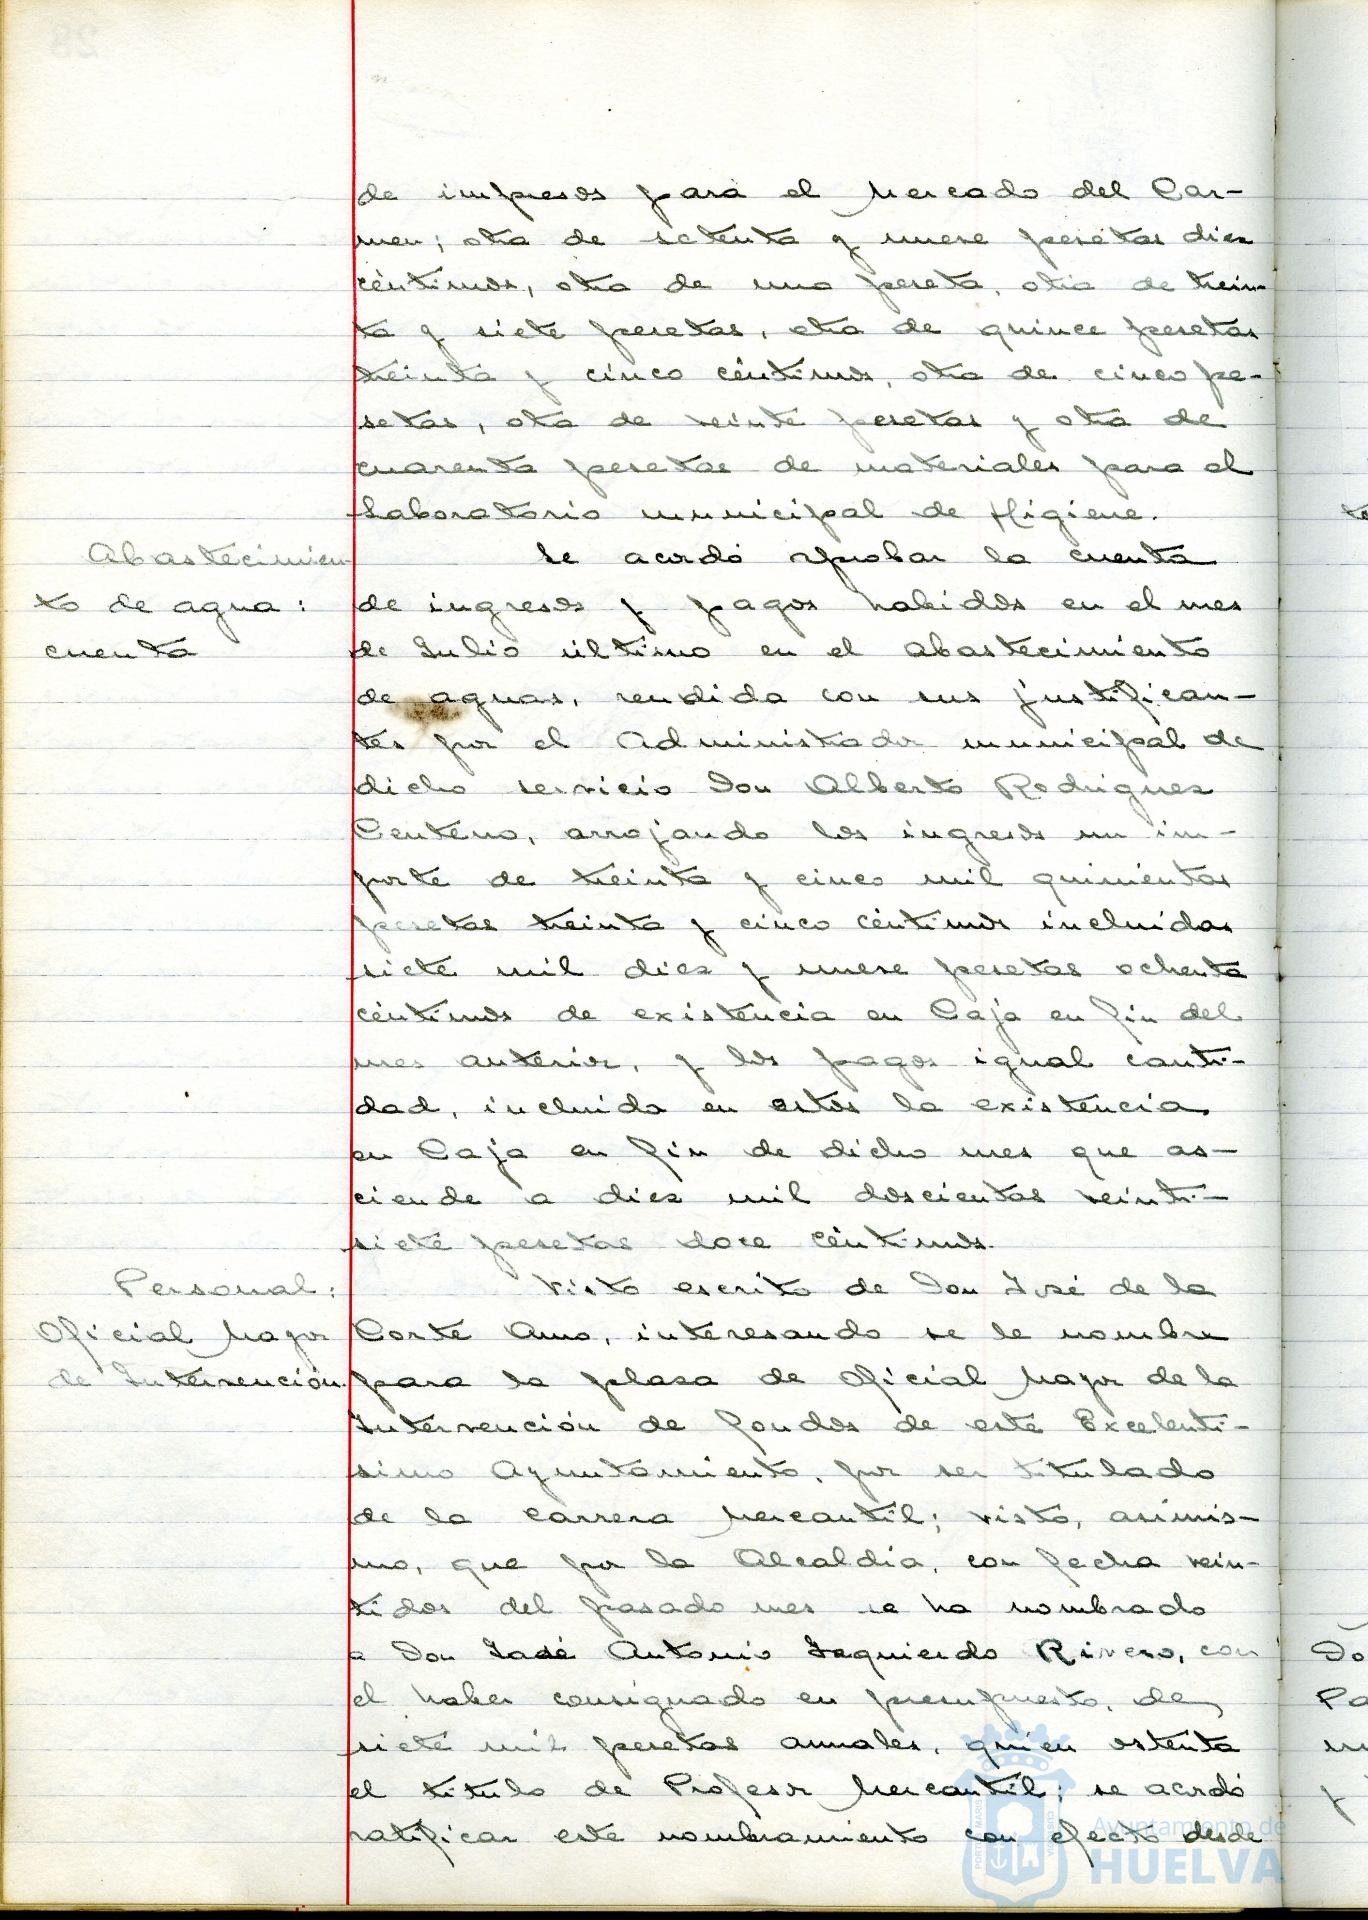 de impresos para el Mercado del Car-
men; otra de setenta y nueve pesetas diez
céntimos, otra de una peseta, otra de trein-
ta y siete pesetas, otra de quince pesetas
treinta y cinco céntimos, otra de cinco pe-
setas, otra de veinte pesetas y otra de
cuarenta pesetas de materiales para el
Laboratorio municipal de Higiene.
Abastecimien-
to de agua:
cuenta
Se acordó aprobar la cuenta
de ingresos y pagos habidos en el mes
de Julio último en el abastecimiento
de aguas, rendida con sus justifican-
tes por el Administrador municipal de
dicho servicio Don Alberto Rodriguez
Centeno, arrojando los ingresos un im-
porte de treinta y cinco mil quinientas
pesetas treinta y cinco céntimos incluidas
siete mil diez y nueve pesetas ochenta
céntimos de existencia en Caja en fin del
mes anterior, y los pagos igual canti-
dad, incluida en estos la existencia
en Caja en fin de dicho mes que as-
ciende a diez mil doscientas veinti-
siete pesetas doce céntimos.
Personal:
Oficial Mayor
de Intervención.
Visto escrito de Don José de la
Corte Amo, interesando se le nombre
para la plaza de Oficial Mayor de la
Intervención de fondos de este Excelenti-
simo Ayuntamiento, por ser titulado
de la carrera Mercantil; visto, asimis-
mo, que por la Alcaldía, con fecha vein-
tidos del pasado mes se ha nombrado
a Don José Antonio Izquierdo Rivero, con
el haber consignado en presupuesto, de
siete mil pesetas anuales, quien ostenta
el titulo de Profesor Mercantil; se acordó
ratificar este nombramiento con efecto desde
Ayuntamiento de
HUELVA